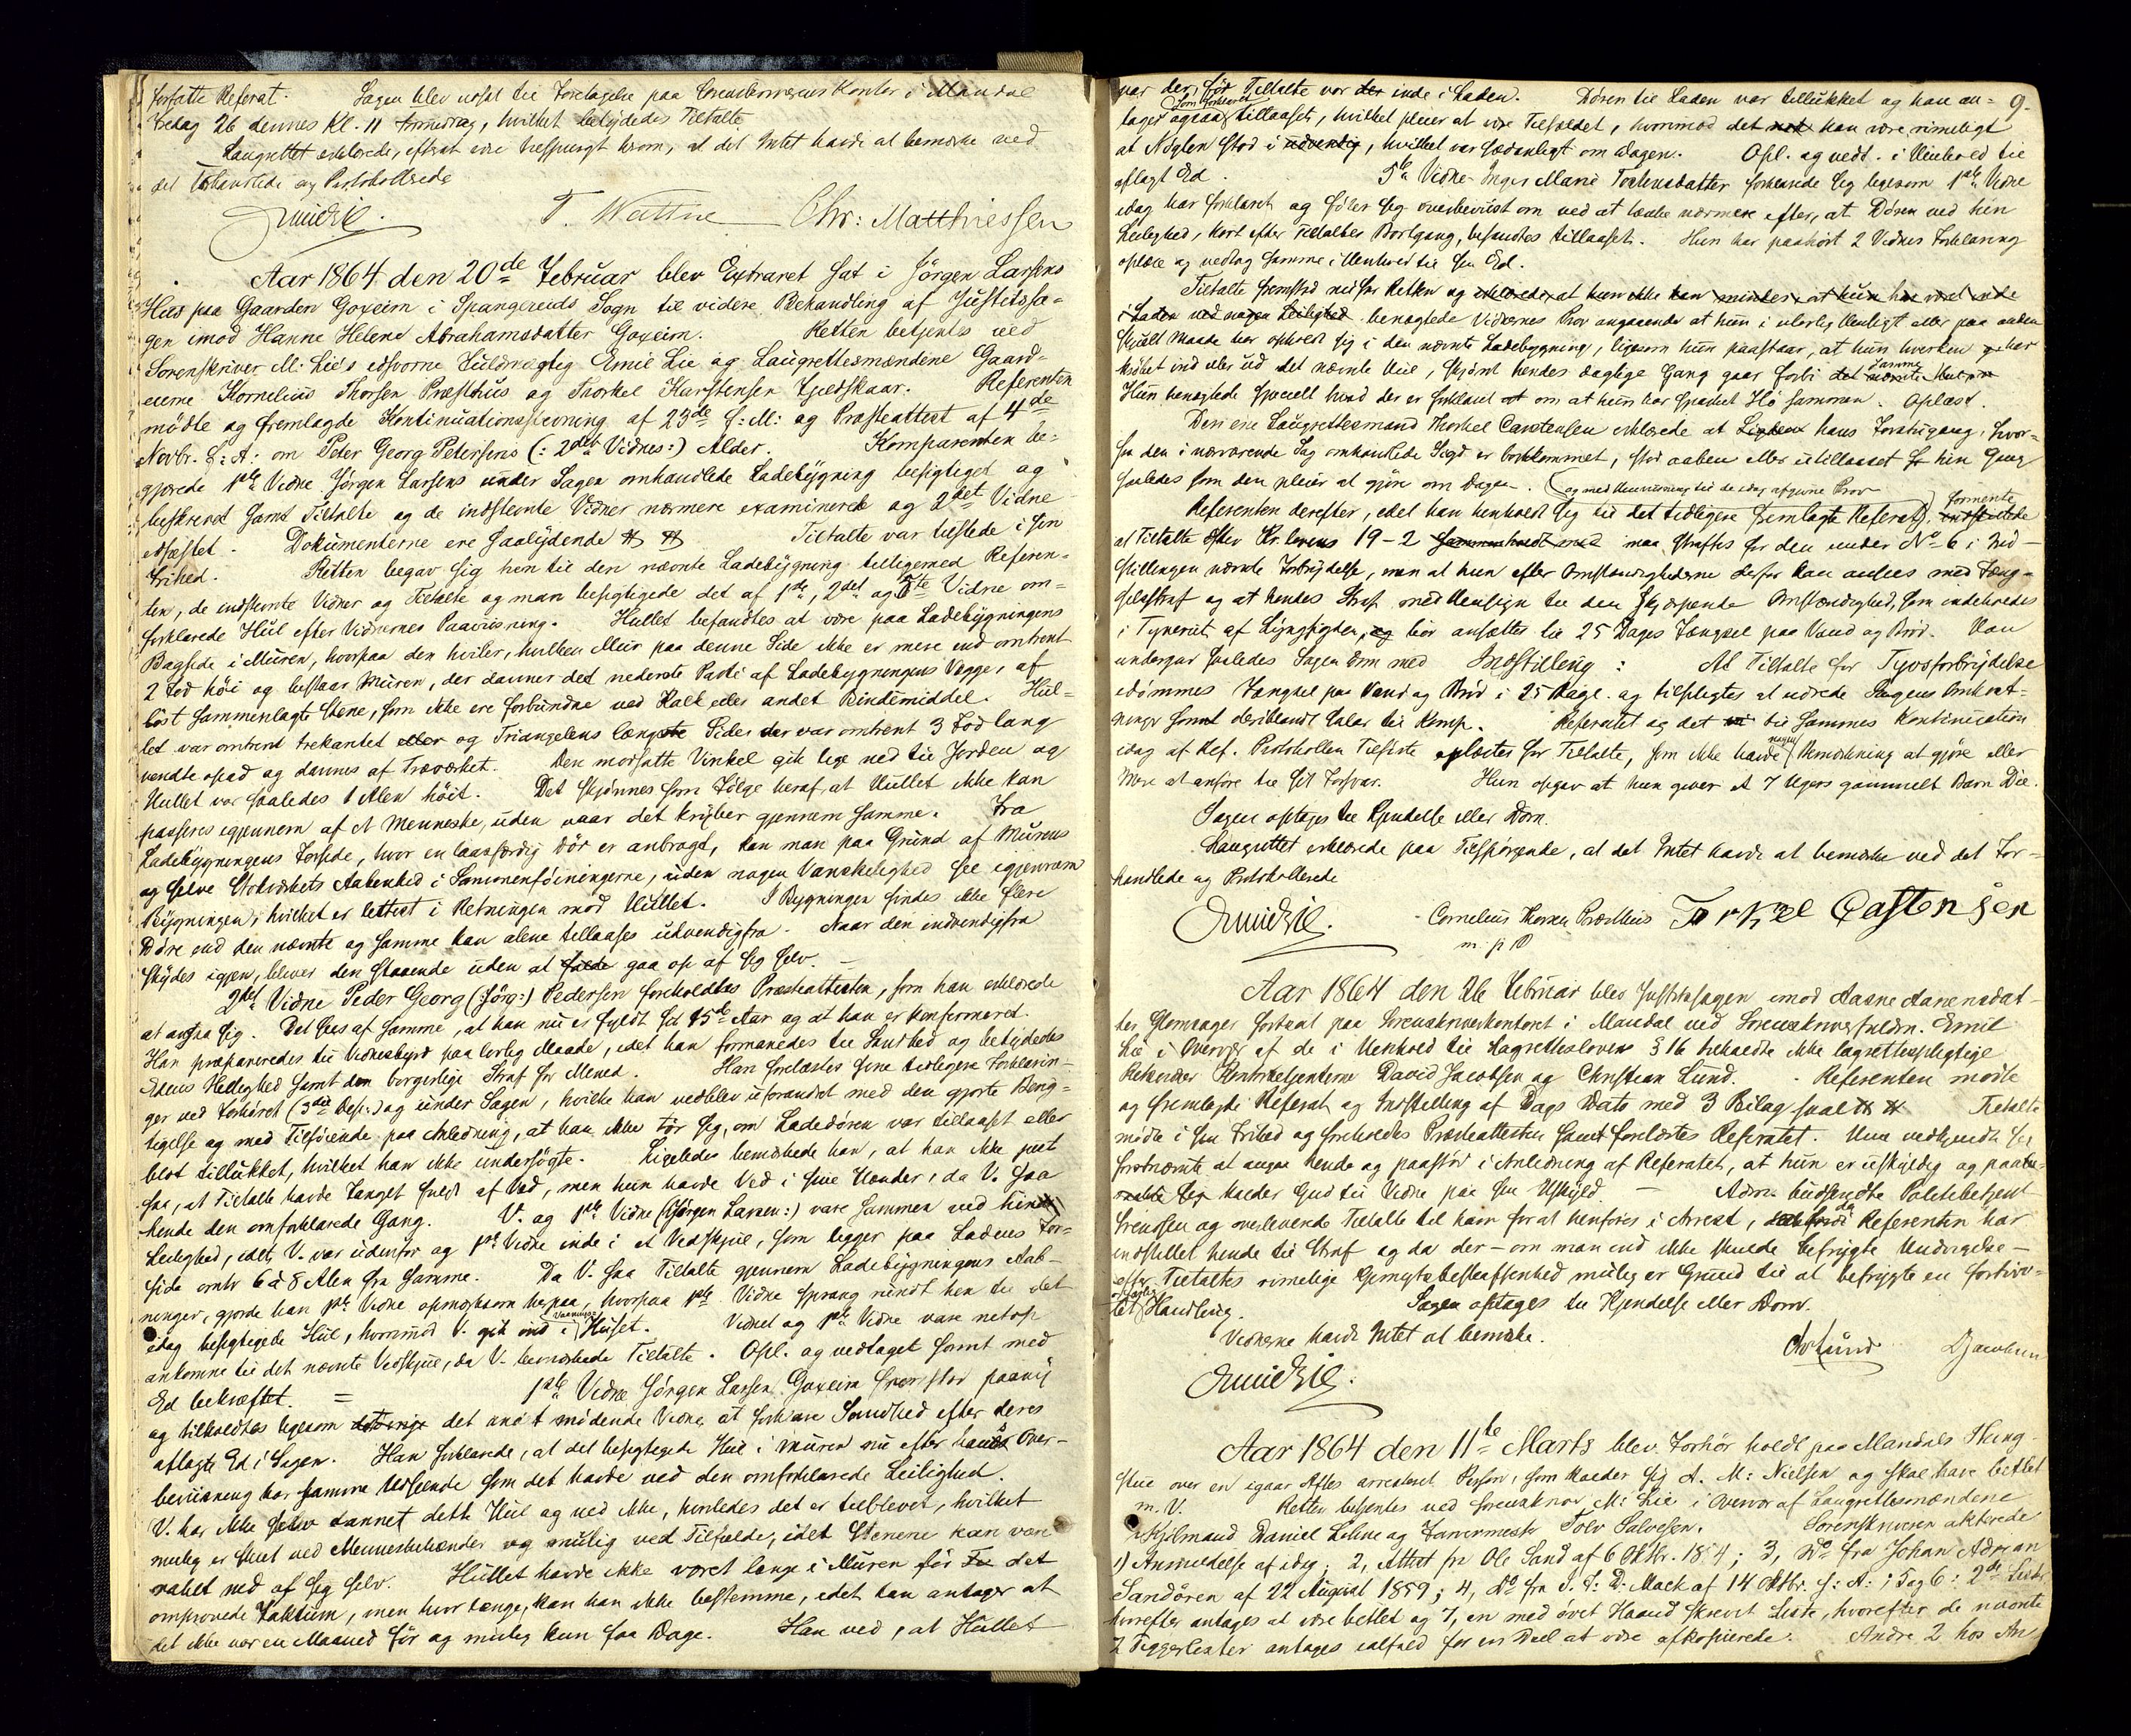 forfatte Referat. Sagen blev udsat til Foretagelse paa Sorenskriverens Kontor i Mandal
Fredag 26 dennes Kl. 11 Formiddag, hvilket betydedes Tiltalte
Laugrettet erklærede, efterat være tilspurgt herom, at det Intet havde at bemærke ved
det Forhandlede og Protokollerede
Emil Lie. T. Wattne Chr: Matthiessen
Aar 1864 den 20de Februar blev Extraret sat i Jörgen Larsens
Huus paa Gaarden Goxeim i Spangereids Sogn til videre Behandling af Justitssa-
gen imod Hanne Helene Abrahamsdatter Goxeim. Retten betjentes ved
Sorenskriver M: Lie's edsvorne Fuldmægtig Emil Lie og Laugrettesmændene Gaard-
eierne Kornelius Thorsen Præsthus og Thorkel Karstensen Gjeldskaar. Referenten
mödte og fremlagde Kontinuationsstevning af 23de f: M: og Præsteattest af 4de
Novbr. f: A: om Peter Georg Petersens (: 2det Vidnes:) Alder. Komparenten be-
gjærede 1ste Vidne Jörgen Larsens under Sagen omhandlede Ladebygning besigtiget og
beskrevet samt Tiltalte og de indstevnte Vidner nærmere examinerede og 2det Vidne
edfæstet. Dokumenterne ere saalydende Tiltalte var tilstede i sin
Frihed. Retten begav sig hen til den nævnte Ladebygning tilligemed Referen-
ten, de indstevnte Vidner og Tiltalte og man besigtigede det af 1ste, 2det og 5te Vidne om-
forklarede Hul efter Vidnernes Paaviisning. Hullet befandtes at være paa Ladebygningens
Bagside i Muren, hvorpaa den hviler, hvilken Muur paa denne Side ikke er mere end omtrent
2 Fod höi og bestaar Muren, der danner det nederste Parti af Ladebygningens Vægge, af
löst sammenlagte Stene, som ikke ere forbundne ved Kalk eller andet Bindemiddel. Hul-
let var omtrent trekantet eller og Triangelens længste Side der var omtrent 3 Fod lang
vendte opad og dannes af Træværket. Den modsatte Vinkel gik lige ned til Jorden og
Hullet var saaledes 1 Alen höit. Det skjönnes som Fölge heraf, at Hullet ikke kan
passeres igjennem af et Menneske, uden naar det kryber gjennem samme. Fra
Ladebygningens Forside, hvor en laasfærdig Dör er anbragt, kan man paa Grund af Murens
og selve Stokværkets Aabenhed i Sammenföiningerne, uden nogen Vanskelighed see igjennem
Bygningen, hvilket er lettest i Retningen mod Hullet. I Bygningen findes ikke flere
Döre end den nævnte og samme kan alene tillaases udvendigfra. Naar den indvendigfra
skydes igjen, bliver den staaende uden at falde gaa op af sig selv. —
2det Vidne Peder Georg (: Jörg:) Pedersen foreholdtes Præsteattesten, som han erklærede
at angaa sig. Det sees af samme, at han nu er fyldt sit 15de Aar og at han er konfirmeret.
Han præpareredes til Vidnesbyrd paa lovlig Maade, idet han formanedes til Sandhed og betydedes
Edens Hellighed samt den borgerlige Straf for Meened. Han forelæstes sine tidligere Forklarin-
ger ved Forhöret (3die Dep:) og under Sagen, hvilke han vedblev uforandret med den gjorte Berig-
tigelse og med Tilföiende paa Anledning, at han ikke tör sige, om Ladedören var tillaaset eller
blot tillukket, hvilket han ikke undersögte. Ligeledes bemærkede han, at han ikke just
saa, at Tiltalte havde Fanget fuldt af Ved, men hun havde Ved i sine Hænder, da V. saa
hende den omforklarede Gang. V. og 1ste Vidne (Jörgen Larsen:) vare sammen ved hin
Leilighed, idet V. var udenfor og 1ste Vidne inde i et Vedskjul, som ligger paa Ladens For-
side omtr 6 à 8 Alen fra samme. Da V. saa Tiltalte gjennem Ladebygningens Aab-
ninger, gjorde han 1ste Vidne opmærksom herpaa, hvorpaa 1ste Vidne sprang rundt hen til det
idag besigtigede Hul, hvorimod V. gik ind i Vaanings- Huset. Vidnet og 1ste Vidne vare netop
ankomne til det nævnte Vedskjul, da V. bemærkede Tiltalte. Opl. og vedtaget samt med
Ed bekræftet. = 1ste Vidne Jörgen Larsen Goxeim fremstod paany
og tilholdtes ligesom det övrige det andet mödende Vidne at forklare Sandhed efter deres
aflagte Ed i Sagen. Han forklarede, at det besigtigede Hul i Muren nu efter hans Over-
beviisning har samme Udseende som det havde ved den omforklarede Leilighed.
V. har ikke selv dannet dette Hul og ved ikke, hvorledes det er tilblevet, hvilket
mulig er skeet ved Menneskehænder og mulig ved Tilfælde, idet Stenene kan være
raslet ned af sig selv. Hullet havde ikke været længe i Muren för det
omprovede Faktum, men hvor længe, kan han ikke bestemme, idet han antager at
det ikke var en Maaned för og mulig kun faa Dage. Han ved, at Hullet
var der, för Tiltalte var der inde i Laden. Dören til Laden var tillukket og han an- 9.
tager ogsaa som forklaret tillaaset, hvilket pleier at være Tilfældet, hvorimod det kan være rimeligt
at Nöglen stod i udvendig, hvilket var sædvanligt om Dagen. Opl. og vedt. i Henhold til
aflagt Ed. 5te Vidne Inger Marie Torkensdatter forklarede sig ligesom 1ste Vidne
idag har forklaret og föler sig overbeviist om ved at tænke nærmere efter, at Dören ved hin
Leilighed, kort efter Tiltaltes Bortgang, befandtes tillaaset. Hun har paahört 2 Vidnes Forklaring
oplæse og vedtog samme i Henhold til sin Ed.
Tiltalte fremstod ned for Retten og erklærede, at hun ikke kan mindes, at hun har været inde
i Laden ved nogen Leilighed benægtede Vidnernes Prov angaaende at hun i ulovlig Hensigt eller paa anden
skjult Maade har opholdt sig i den nævnte Ladebygning, ligesom hun paastaar, at hun hverken har
kröbet ind eller ud det nævnte Hul, skjönt hendes daglige Gang gaar forbi samme det nævnte Hul
Hun benægtede specielt hvad der er forklaret om at hun har sparket Hö sammen. Oplæst.
Den ene Laugrettesmand Thorkel Carstensen erklærede at hans Forstugang, hvor-
fra den i nærværende Sag omhandlede Sigd er bortkommet, stod aaben eller utillaaset hin Gang
saaledes som den pleier at gjöre om Dagen. og med Henviisning til de idag afgivne Prov
Referenten derefter, idet han henholdt sig til det tidligere fremlagte Referat, formente indstillede
at Tiltalte efter Kr. lovens 19-2 sammenholdt med maa straffes for den under No 6 i Ind-
stillingen nævnte Forbrydelse, men at hun efter Omstændighederne derfor kan ansees med Fæng-
selsstraf og at hendes Straf med Hensyn til den skjærpende Omstændighed, som indeholdes
i Tyveriet af Lyngsigden, og bör ansættes til 25 Dages Fængsel paa Vand og Bröd. Han
undergav saaledes Sagen Dom med Indstilling: At Tiltalte for Tyvsforbrydelse
idömmes Fængsel paa Vand og Bröd i 25 Dage og tilpligtes at udrede Sagens Omkost-
ninger samt deriblandt Salær til Komp. Referatet og det til sammes Kontinuation
idag af Ref. Protokollen Tilförte oplæstes for Tiltalte, som ikke havde nogen Bemærkning at gjöre eller
Mere at anföre til sit Forsvar. Hun opgav at hun giver et 7 Ugers gammelt Barn Die.
Sagen optages til Kjendelse eller Dom.
Laugrettet erklærede paa Tilspörgende, at det Intet havde at bemærke ved det For-
handlede og Protokollerede
Emil Lie. Cornelius Thorsen Præsthus Torkel Castensen
m. p P
Aar 1864 den 26 Februar blev Justitssagen imod Aasne Aanensdat-
ter Homsager fortsat paa Sorenskriverkontoret i Mandal ved Sorenskriverfuldm. Emil
Lie i Overvær af de i Henhold til Lagretteslovens § 16 tilkaldte ikke lagrettespligtige
Rekvider Kontorbetjenterne David Jacobsen og Christian Lund. Referenten mödte
og fremlagde Referat og Indstilling af Dags Dato med 3 Bilag saal. Tiltalte
mödte i sin Frihed og foreholdtes Præsteattesten samt forelæstes Referatet. Hun vedkjendte sig
förstnævnte at angaa hende og paastod i Anledning af Referatet, at hun er uskyldig og paabe-
raabte sig kalder Gud til Vidne paa sin Uskyld. — Adm. tilsendte Politibetjent
Svendsen og overleverede Tiltalte til ham for at henföres i Arrest, da Referenten har
indstillet hende til Straf og da der — om man end ikke skulde befrygte Undvigelse —
efter Tiltaltes rimelige Gemytsbeskaffenhed mulig er Grund til at befrygte en fortviv-
let Handling. Sagen optages til Kjendelse eller Dom.
Vidnerne havde Intet at bemærke. Chr Lund DJacobsen
Emil Lie.
Aar 1864 den 11te Marts blev Forhör holdt paa Mandals Thing-
stue over en igaar Aftes arresteret Person, som kalder sig A. M: Nielsen og skal have betlet
m. V. Retten betjentes ved Sorenskriver M: Lie i Overvær af Laugrettesmændene
Skjölmand Daniel Lohne og Farvermester Tolv Salvesen. Sorenskriveren akterede
1) Anmeldelse af idag; 2, Attest fra Ole Sand af 6 Oktbr. 1854; 3, Do fra Johan Adrian
Sandören af 22 August 1859; 4, Do fra J. F: D. Mack af 14 Oktbr. f: A: ; 5 og 6: 2de Lister
hvorefter antages at være betlet og 7, en med övet Haand skrevet Liste, hvorefter de nævnte
2 Tiggerlister antages ialfald for en Deel at være afkopierede. Andre 2 hos An-